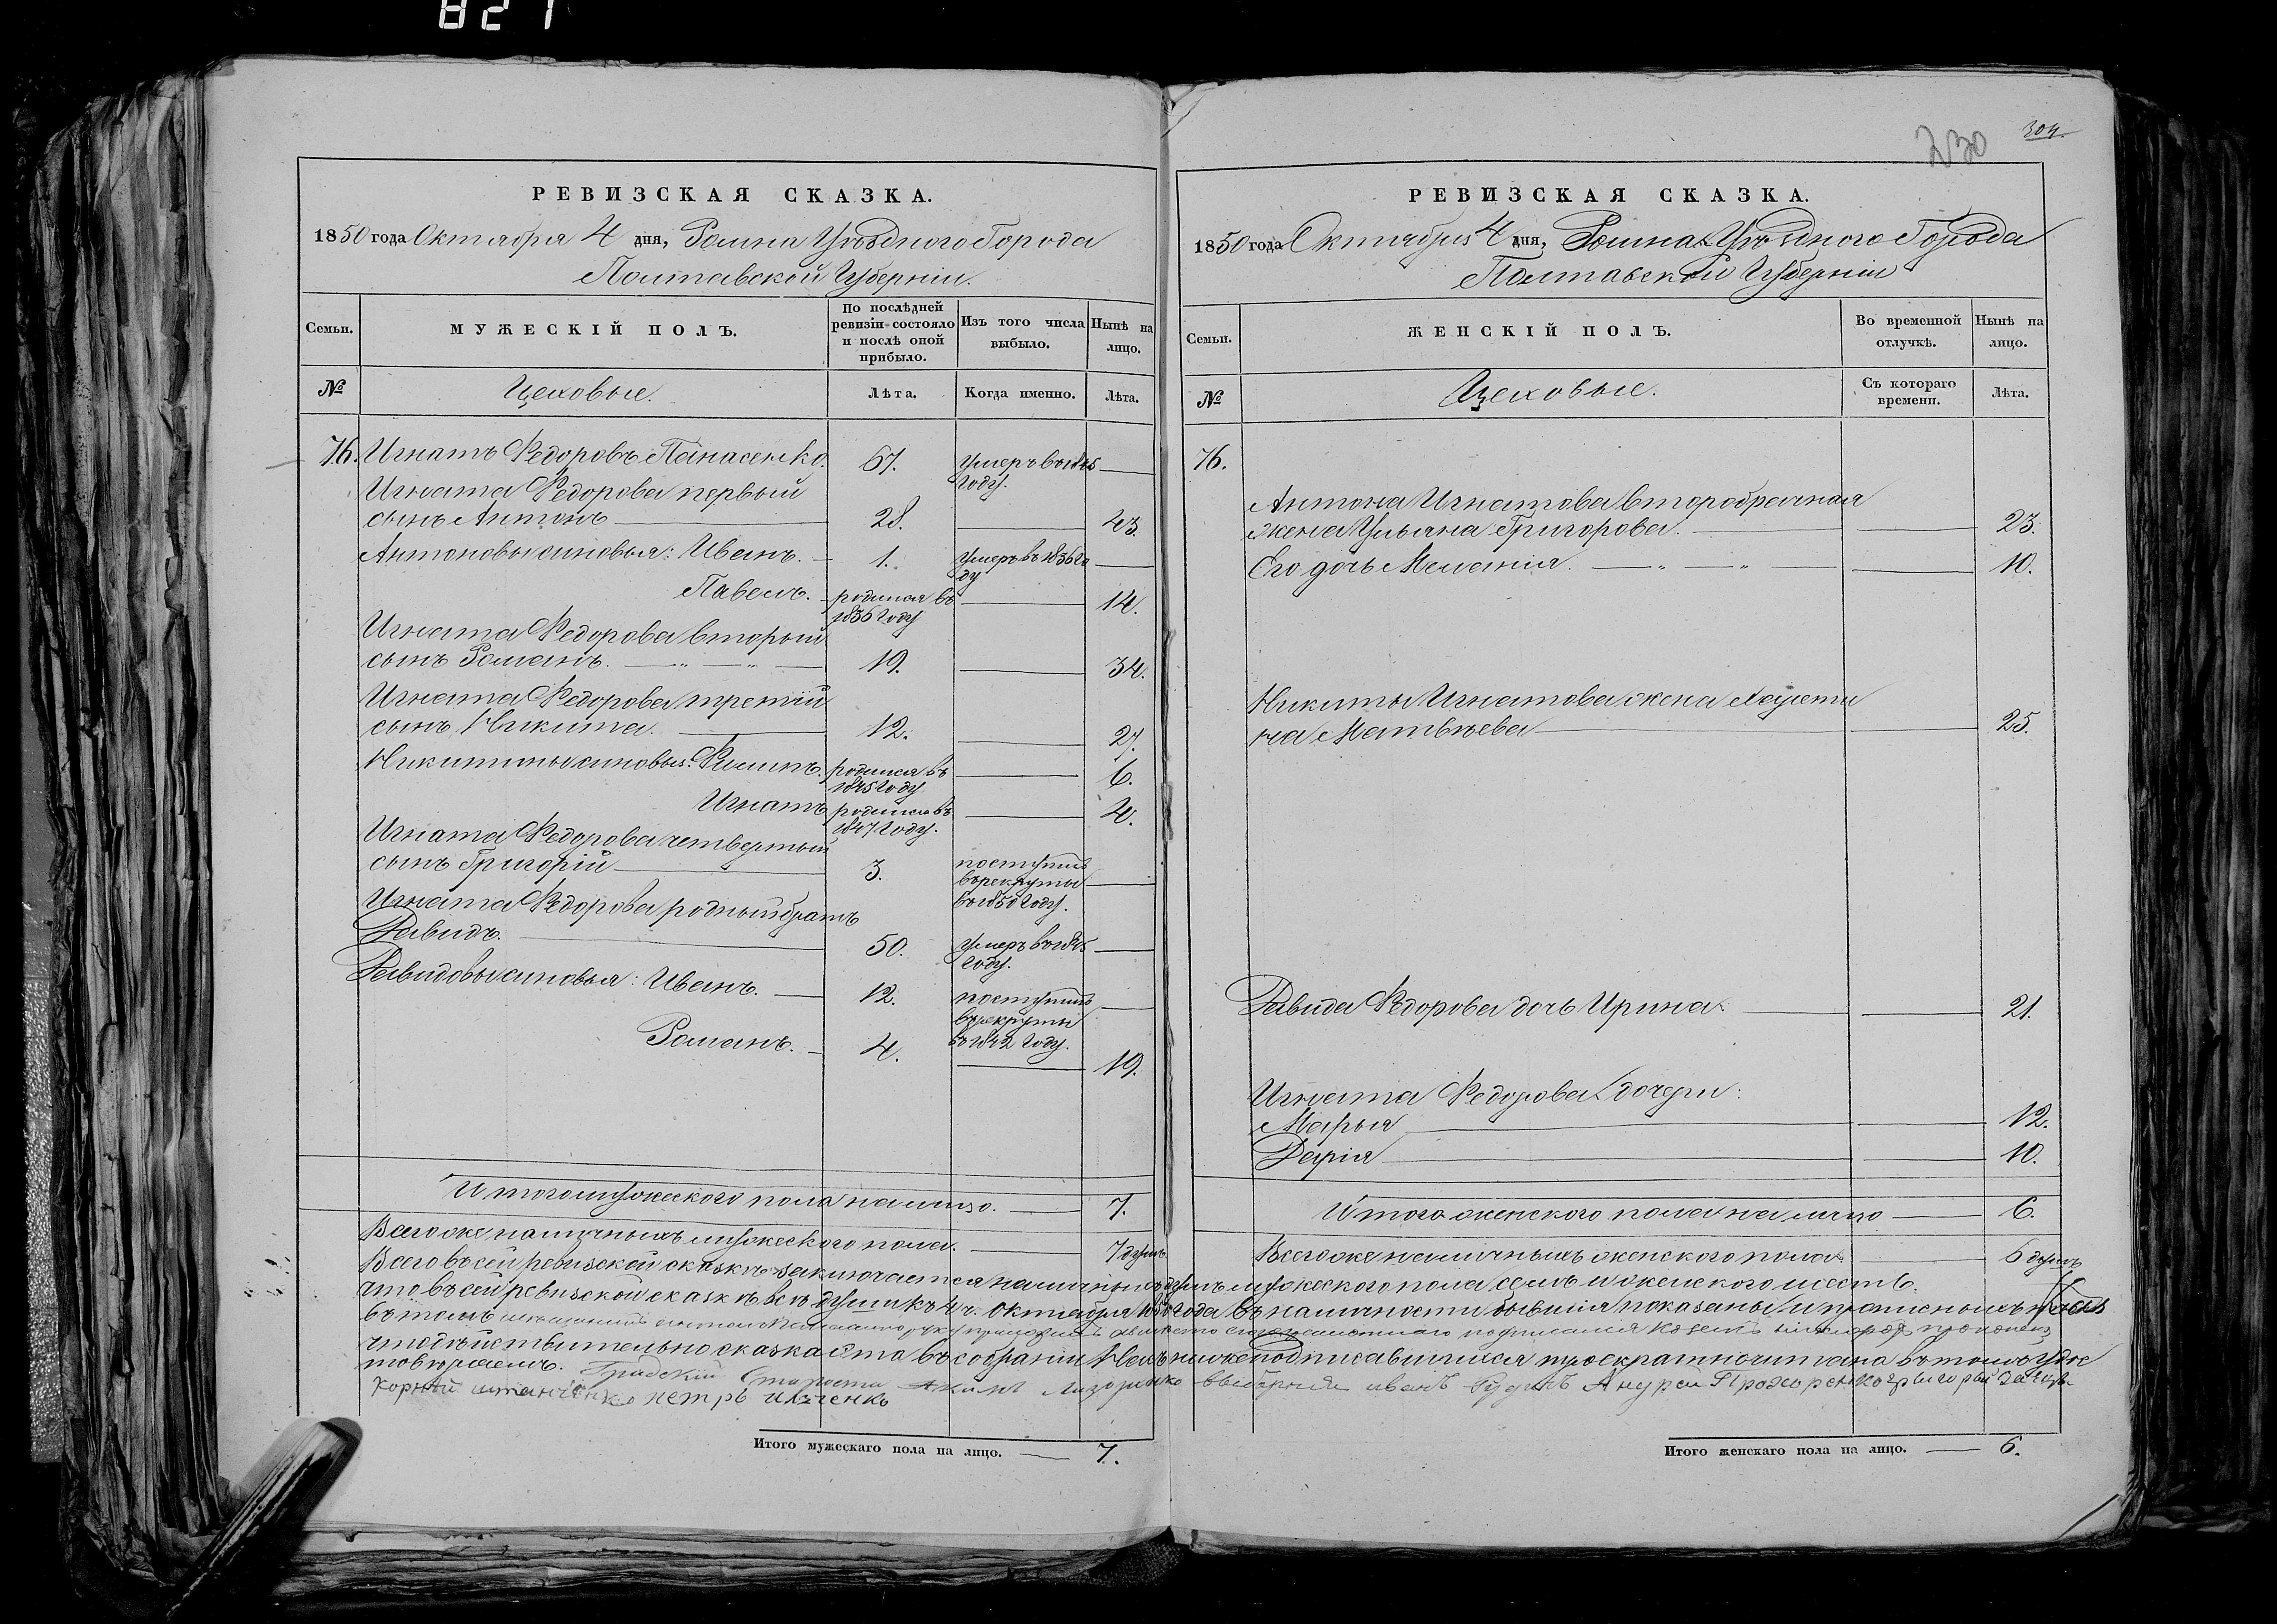 827
РЕВИЗСКАЯ СКАЗКА.
1850 года Октября 4 дня, Ромна Уѣздного Города
Полтавской Губерніи.
Семьи.
МУЖЕСКІЙ ПОЛЪ.
По послѣдней ревизіи состояло и послѣ оной прибыло.
Изъ того числа выбыло.
Нынѣ на лицо.
№
Цеховые.
Лѣта.
Когда именно.
Лѣта.
76. Игнатъ Федоровъ Панасенко. 67. Умеръ в 1845 Году.
Игната Федорова первый
сынъ Антонъ 28. 43.
Антоновы сыновья: Иванъ. 1. Умеръ въ 1836 Году
Павелъ. родился въ 1836 Году 14.
Игната Федорова вторый
сынъ Романъ. 19. 34.
Игната Федорова третій
сынъ Никита. 12. 27.
Никитины сыновья: Филипъ. родился въ 1845 Году 6.
Игнатъ родился въ 1847 Году. 4.
Игната Федорова четвертый
сынъ Григорій 3. поступилъ въ рекруты в 1850 Году.
Игната Федорова родный братъ
Давидъ. 50. Умеръ в 1845 Году.
Давидовы сыновья: Иванъ. 12. поступилъ въ рекруты в 1842 Году.
Романъ. 4. 19.
Итого мужеского пола на лицо. 7.
Всего же наличныхъ мужеского пола. 7 душъ
230
304.
РЕВИЗСКАЯ СКАЗКА.
1850 года Октября 4 дня, Ромна Уѣздного Города
Полтавской Губерніи
Семьи.
ЖЕНСКІЙ ПОЛЪ.
Во временной отлучкѣ.
Нынѣ на лицо.
№
Цеховые.
Съ котораго времени.
Лѣта.
76.
Антона Игнатова второбрачная
жена Ульяна Григорова. 23.
Его дочь Меланія. 10.
Никиты Игнатова жена
Матвѣева 25.
Давида Федорова дочь Ирина 21.
Игната Федорова дочери:
Марья 12.
Дарія 10.
Итого женского пола на лицо 6.
Всего же наличныхъ женского пола 6 душъ
Всего въ сей ревизской сказкѣ заключается наличныхъ душъ мужеского пола семь и женского шесть
что въ сей ревизской сказкѣ всѣ души къ 4 ч. Октября 1850 года въ наличности бывшія показаны и прописныхъ нѣтъ
въ томъ
что дѣйствительно сказка ета въ собраніи насъ нижеподписавшихся троекратно читана въ томъ удос
товѣряемъ. Градскій Староста выборніи иванъ Андреи Прохоренко григорьи
Корнѣй петръ
Итого мужескаго пола на лицо. 7.
Итого женскаго пола на лицо. 6.